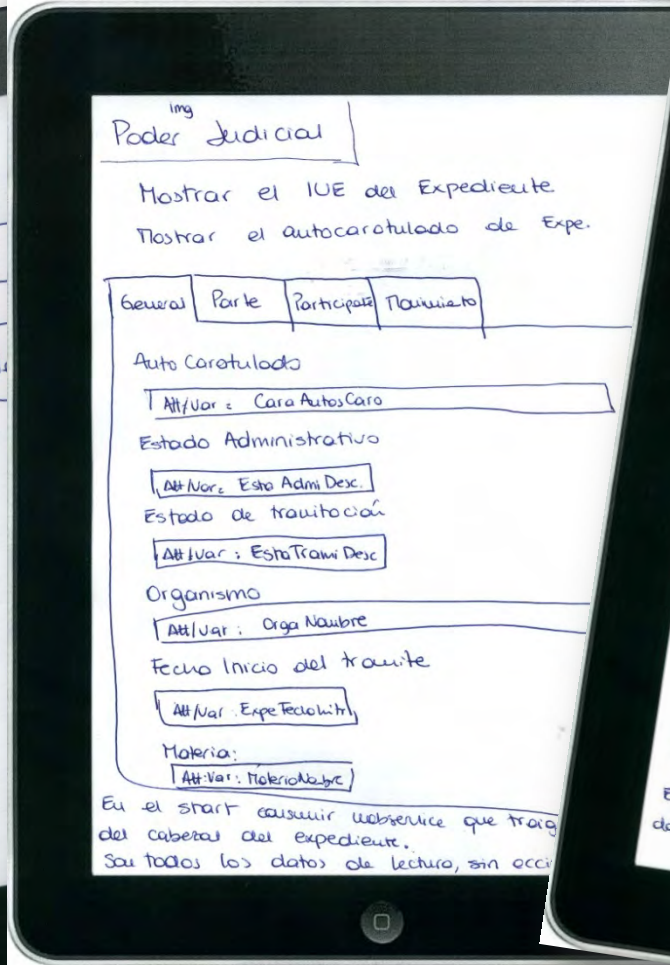 img
Poder Judicial
Mostrar el IUE del Expediente.
Mostrar el autocarotulado de Expe.
General Parte Participate Movimieto
Auto Carotulado
Att/Var: CaraAutosCara
Estado Administrativo
Att/Var: EstaAdmiDesc.
Estado de tramitación
Att/Var: EstaTramiDesc
Organismo
Att/Var: OrgaNombre
Fecha Inicio del tramite
Att/Var: ExpeFecha
Materia:
Att:Var: MateriaNombre
En el start consumir webservice que traig
del cabezal del expediente.
Son todos los datos de lectura, sin acci
E
de